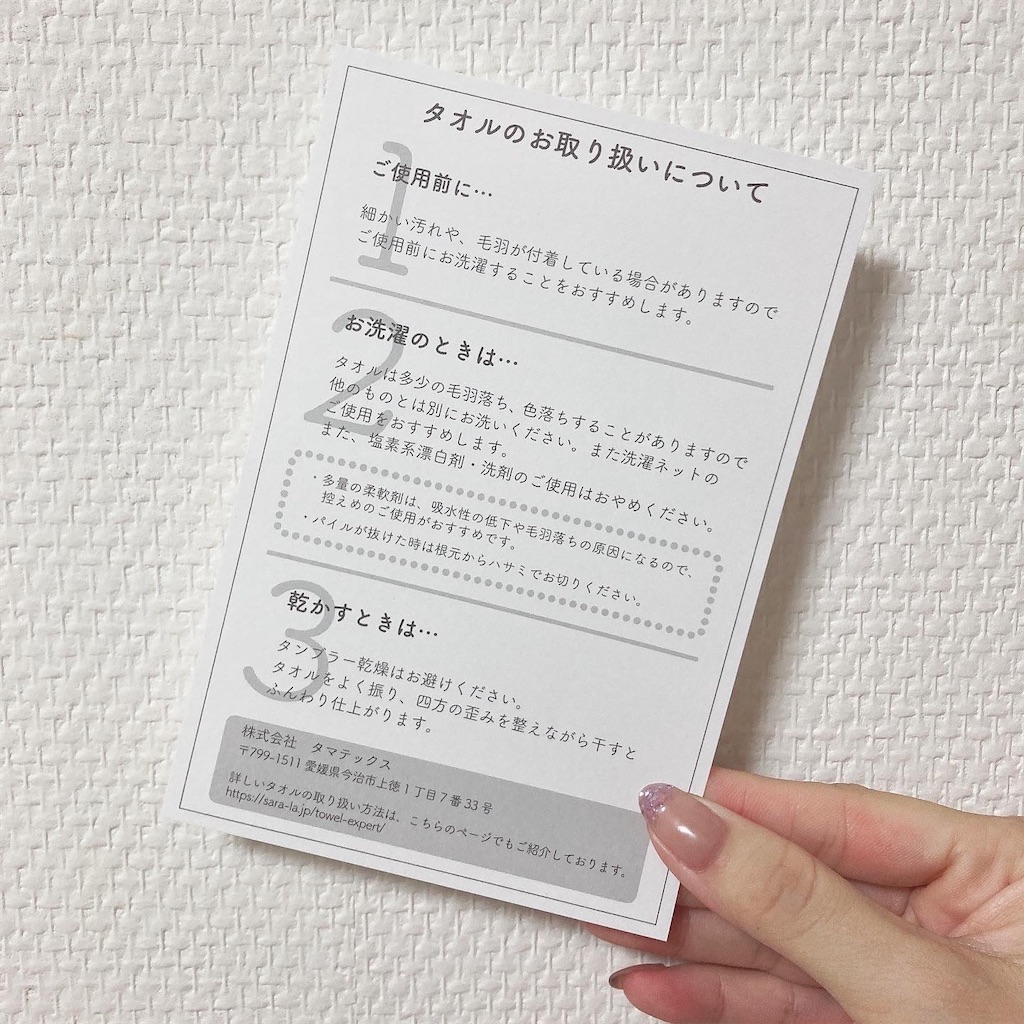 タオルのお取り扱いについて
1
ご使用前に…
細かい汚れや、毛羽が付着している場合がありますので
ご使用前にお洗濯することをおすすめします。
2
お洗濯のときは…
タオルは多少の毛羽落ち、色落ちすることがありますので
他のものとは別にお洗いください。また洗濯ネットの
ご使用をおすすめします。
また、塩素系漂白剤・洗剤のご使用はおやめください。
・多量の柔軟剤は、吸水性の低下や毛羽落ちの原因になるので、
控えめのご使用がおすすめです。
・パイルが抜けた時は根元からハサミでお切りください。
3
乾かすときは…
タンブラー乾燥はお避けください。
タオルをよく振り、四方の歪みを整えながら干すと
ふんわり仕上がります。
株式会社 タマテックス
〒799-1511 愛媛県今治市上徳1丁目7番33号
詳しいタオルの取り扱い方法は、こちらのページでもご紹介しております。
https://sara-la.jp/towel-expert/